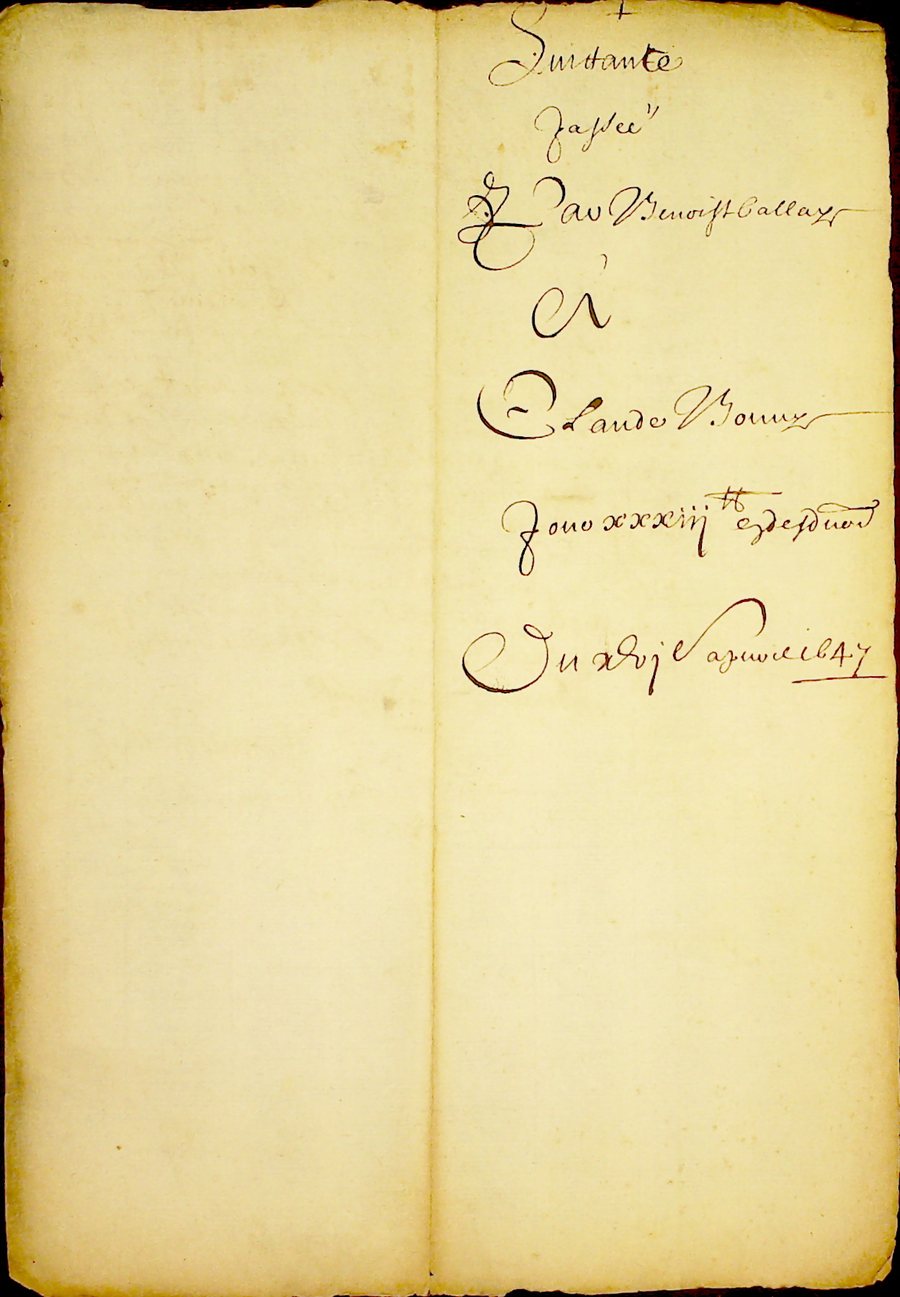 +
Quittance
passée
Par Benoist Ballay
A
Claude Bonny
Pour xxxiij ℔
Du xxvj apvril 1647